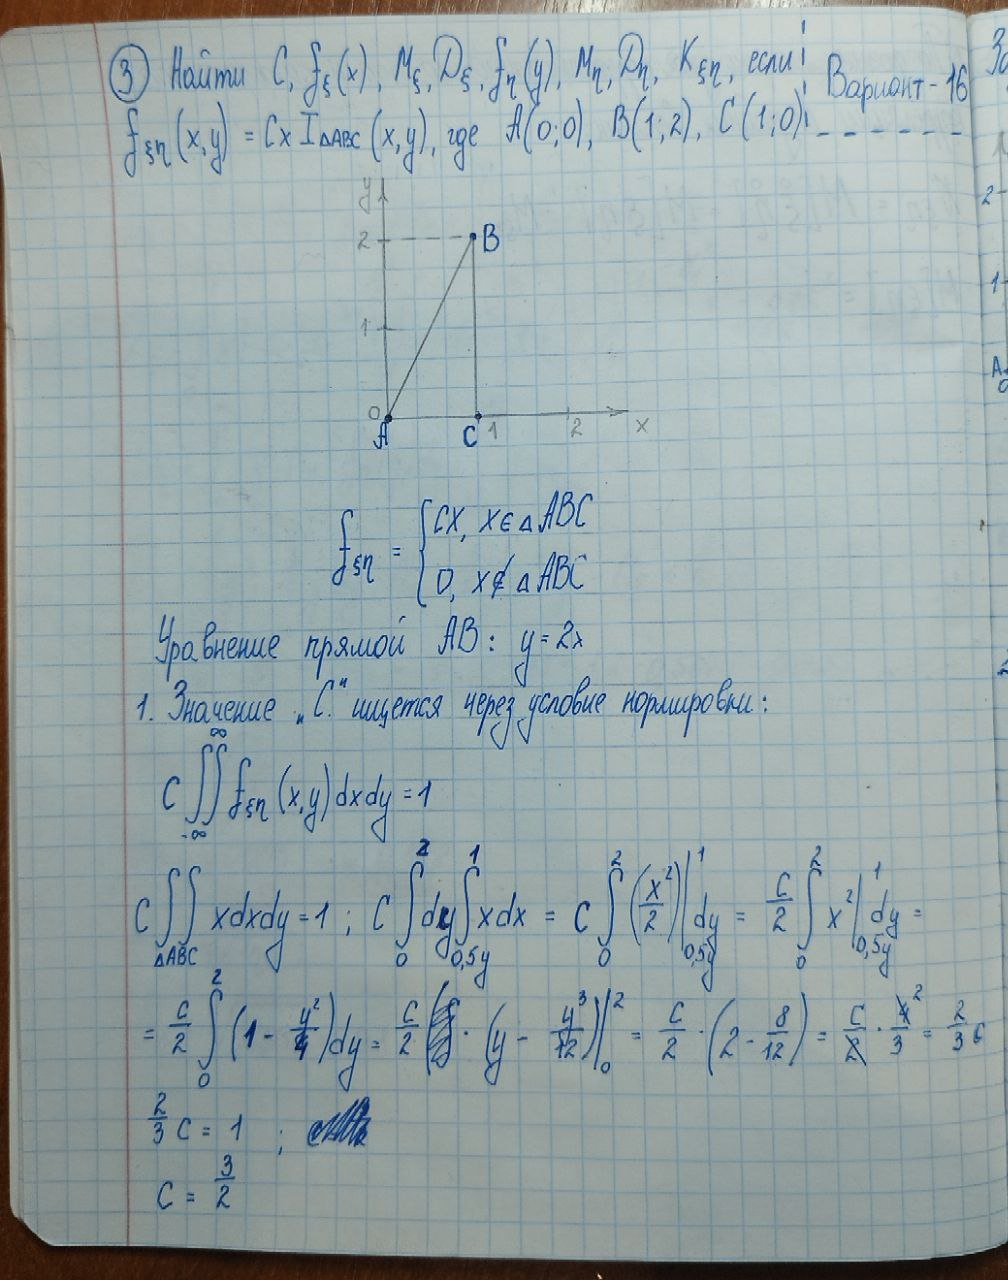 ③ Найти C, fξ(x), Mξ, Dξ, fη(y), Mη, Dη, Kξη, если
Вариант-16
fξη(x,y) = Cx I△ABC (x,y), где A(0;0), B(1;2), C(1;0)
y
2
B
1
0
A
C
1
2
x
fξη = { Cx, x∈△ABC
0, x∉△ABC
Уравнение прямой AB: y=2x
1. Значение „C" ищется через условие нормировки:
C ∫∫_{-∞}^{∞} fξη (x,y) dxdy = 1
C ∫∫_{△ABC} xdxdy = 1 ; C ∫_0^2 dy ∫_{0,5y}^1 xdx = C ∫_0^2 (x²/2) |_{0,5y}^1 dy = C/2 ∫_0^2 x² |_{0,5y}^1 dy =
= C/2 ∫_0^2 (1 - y²/4) dy = C/2 · (y - y³/12) |_0^2 = C/2 · (2 - 8/12) = C/2 · 4/3 ² = 2/3 C
2/3 C = 1 ;
C = 3/2